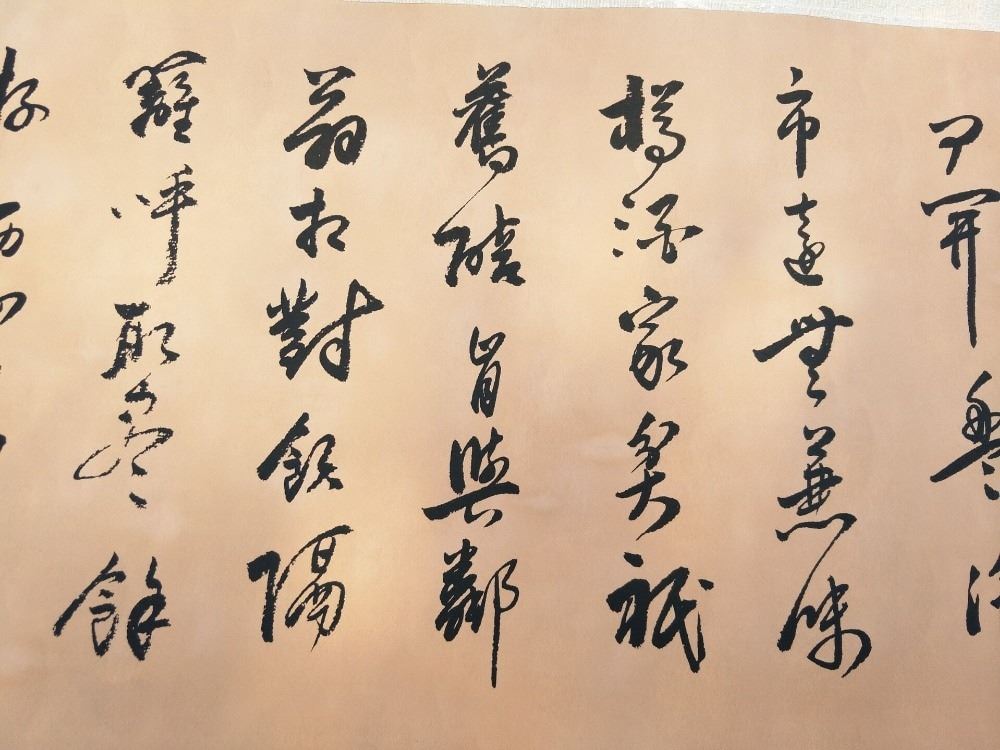 開盤
市遠無兼味
樽酒家貧祗
舊醅肯與鄰
翁相對飲隔
籬呼取盡餘